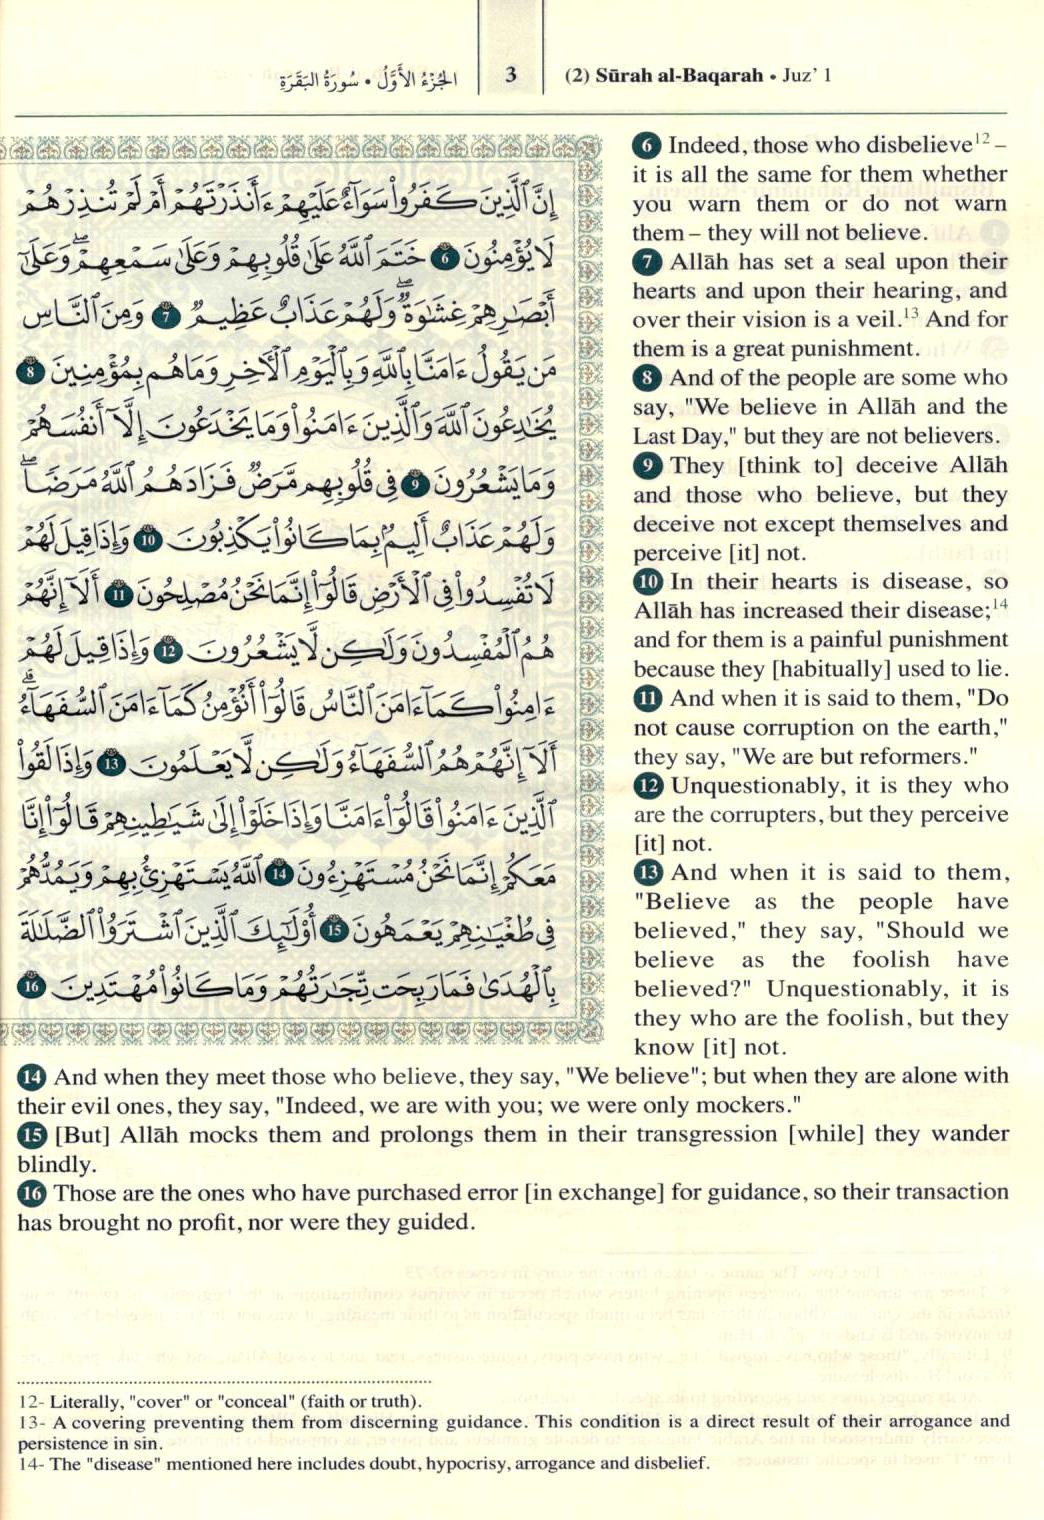 الجُزْءُ الأَوَّلُ • سُورَةُ البَقَرَةِ
3
(2) Sūrah al-Baqarah • Juz’ 1
إِنَّ ٱلَّذِينَ كَفَرُواْ سَوَآءٌ عَلَيْهِمْ ءَأَنذَرْتَهُمْ أَمْ لَمْ تُنذِرْهُمْ
لَا يُؤْمِنُونَ 6 خَتَمَ ٱللَّهُ عَلَىٰ قُلُوبِهِمْ وَعَلَىٰ سَمْعِهِمْۖ وَعَلَىٰٓ
أَبْصَٰرِهِمْ غِشَٰوَةٌۖ وَلَهُمْ عَذَابٌ عَظِيمٌ 7 وَمِنَ ٱلنَّاسِ
مَن يَقُولُ ءَامَنَّا بِٱللَّهِ وَبِٱلْيَوْمِ ٱلْأٓخِرِ وَمَا هُم بِمُؤْمِنِينَ 8
يُخَٰدِعُونَ ٱللَّهَ وَٱلَّذِينَ ءَامَنُواْ وَمَا يَخْدَعُونَ إِلَّآ أَنفُسَهُمْ
وَمَا يَشْعُرُونَ 9 فِى قُلُوبِهِم مَّرَضٌ فَزَادَهُمُ ٱللَّهُ مَرَضًاۖ
وَلَهُمْ عَذَابٌ أَلِيمٌۢ بِمَا كَانُواْ يَكْذِبُونَ 10 وَإِذَا قِيلَ لَهُمْ
لَا تُفْسِدُواْ فِى ٱلْأَرْضِ قَالُوٓاْ إِنَّمَا نَحْنُ مُصْلِحُونَ 11 أَلَآ إِنَّهُمْ
هُمُ ٱلْمُفْسِدُونَ وَلَٰكِن لَّا يَشْعُرُونَ 12 وَإِذَا قِيلَ لَهُمْ
ءَامِنُواْ كَمَآ ءَامَنَ ٱلنَّاسُ قَالُوٓاْ أَنُؤْمِنُ كَمَآ ءَامَنَ ٱلسُّفَهَآءُۗ
أَلَآ إِنَّهُمْ هُمُ ٱلسُّفَهَآءُ وَلَٰكِن لَّا يَعْلَمُونَ 13 وَإِذَا لَقُواْ
ٱلَّذِينَ ءَامَنُواْ قَالُوٓاْ ءَامَنَّا وَإِذَا خَلَوْاْ إِلَىٰ شَيَٰطِينِهِمْ قَالُوٓاْ إِنَّا
مَعَكُمْ إِنَّمَا نَحْنُ مُسْتَهْزِءُونَ 14 ٱللَّهُ يَسْتَهْزِئُ بِهِمْ وَيَمُدُّهُمْ
فِى طُغْيَٰنِهِمْ يَعْمَهُونَ 15 أُوْلَٰٓئِكَ ٱلَّذِينَ ٱشْتَرَوُاْ ٱلضَّلَٰلَةَ
بِٱلْهُدَىٰ فَمَا رَبِحَت تِّجَٰرَتُهُمْ وَمَا كَانُواْ مُهْتَدِينَ 16
6 Indeed, those who disbelieve12 –
it is all the same for them whether
you warn them or do not warn
them – they will not believe.
7 Allāh has set a seal upon their
hearts and upon their hearing, and
over their vision is a veil.13 And for
them is a great punishment.
8 And of the people are some who
say, "We believe in Allāh and the
Last Day," but they are not believers.
9 They [think to] deceive Allāh
and those who believe, but they
deceive not except themselves and
perceive [it] not.
10 In their hearts is disease, so
Allāh has increased their disease;14
and for them is a painful punishment
because they [habitually] used to lie.
11 And when it is said to them, "Do
not cause corruption on the earth,"
they say, "We are but reformers."
12 Unquestionably, it is they who
are the corrupters, but they perceive
[it] not.
13 And when it is said to them,
"Believe as the people have
believed," they say, "Should we
believe as the foolish have
believed?" Unquestionably, it is
they who are the foolish, but they
know [it] not.
14 And when they meet those who believe, they say, "We believe"; but when they are alone with
their evil ones, they say, "Indeed, we are with you; we were only mockers."
15 [But] Allāh mocks them and prolongs them in their transgression [while] they wander
blindly.
16 Those are the ones who have purchased error [in exchange] for guidance, so their transaction
has brought no profit, nor were they guided.
12- Literally, "cover" or "conceal" (faith or truth).
13- A covering preventing them from discerning guidance. This condition is a direct result of their arrogance and
persistence in sin.
14- The "disease" mentioned here includes doubt, hypocrisy, arrogance and disbelief.